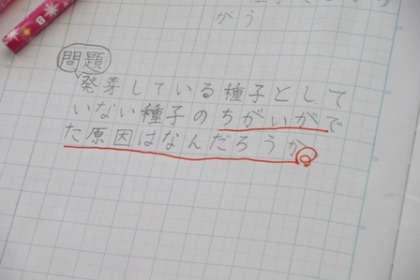 がう
問題
発芽している種子として
いない種子のちがいがで
た原因はなんだろうか。